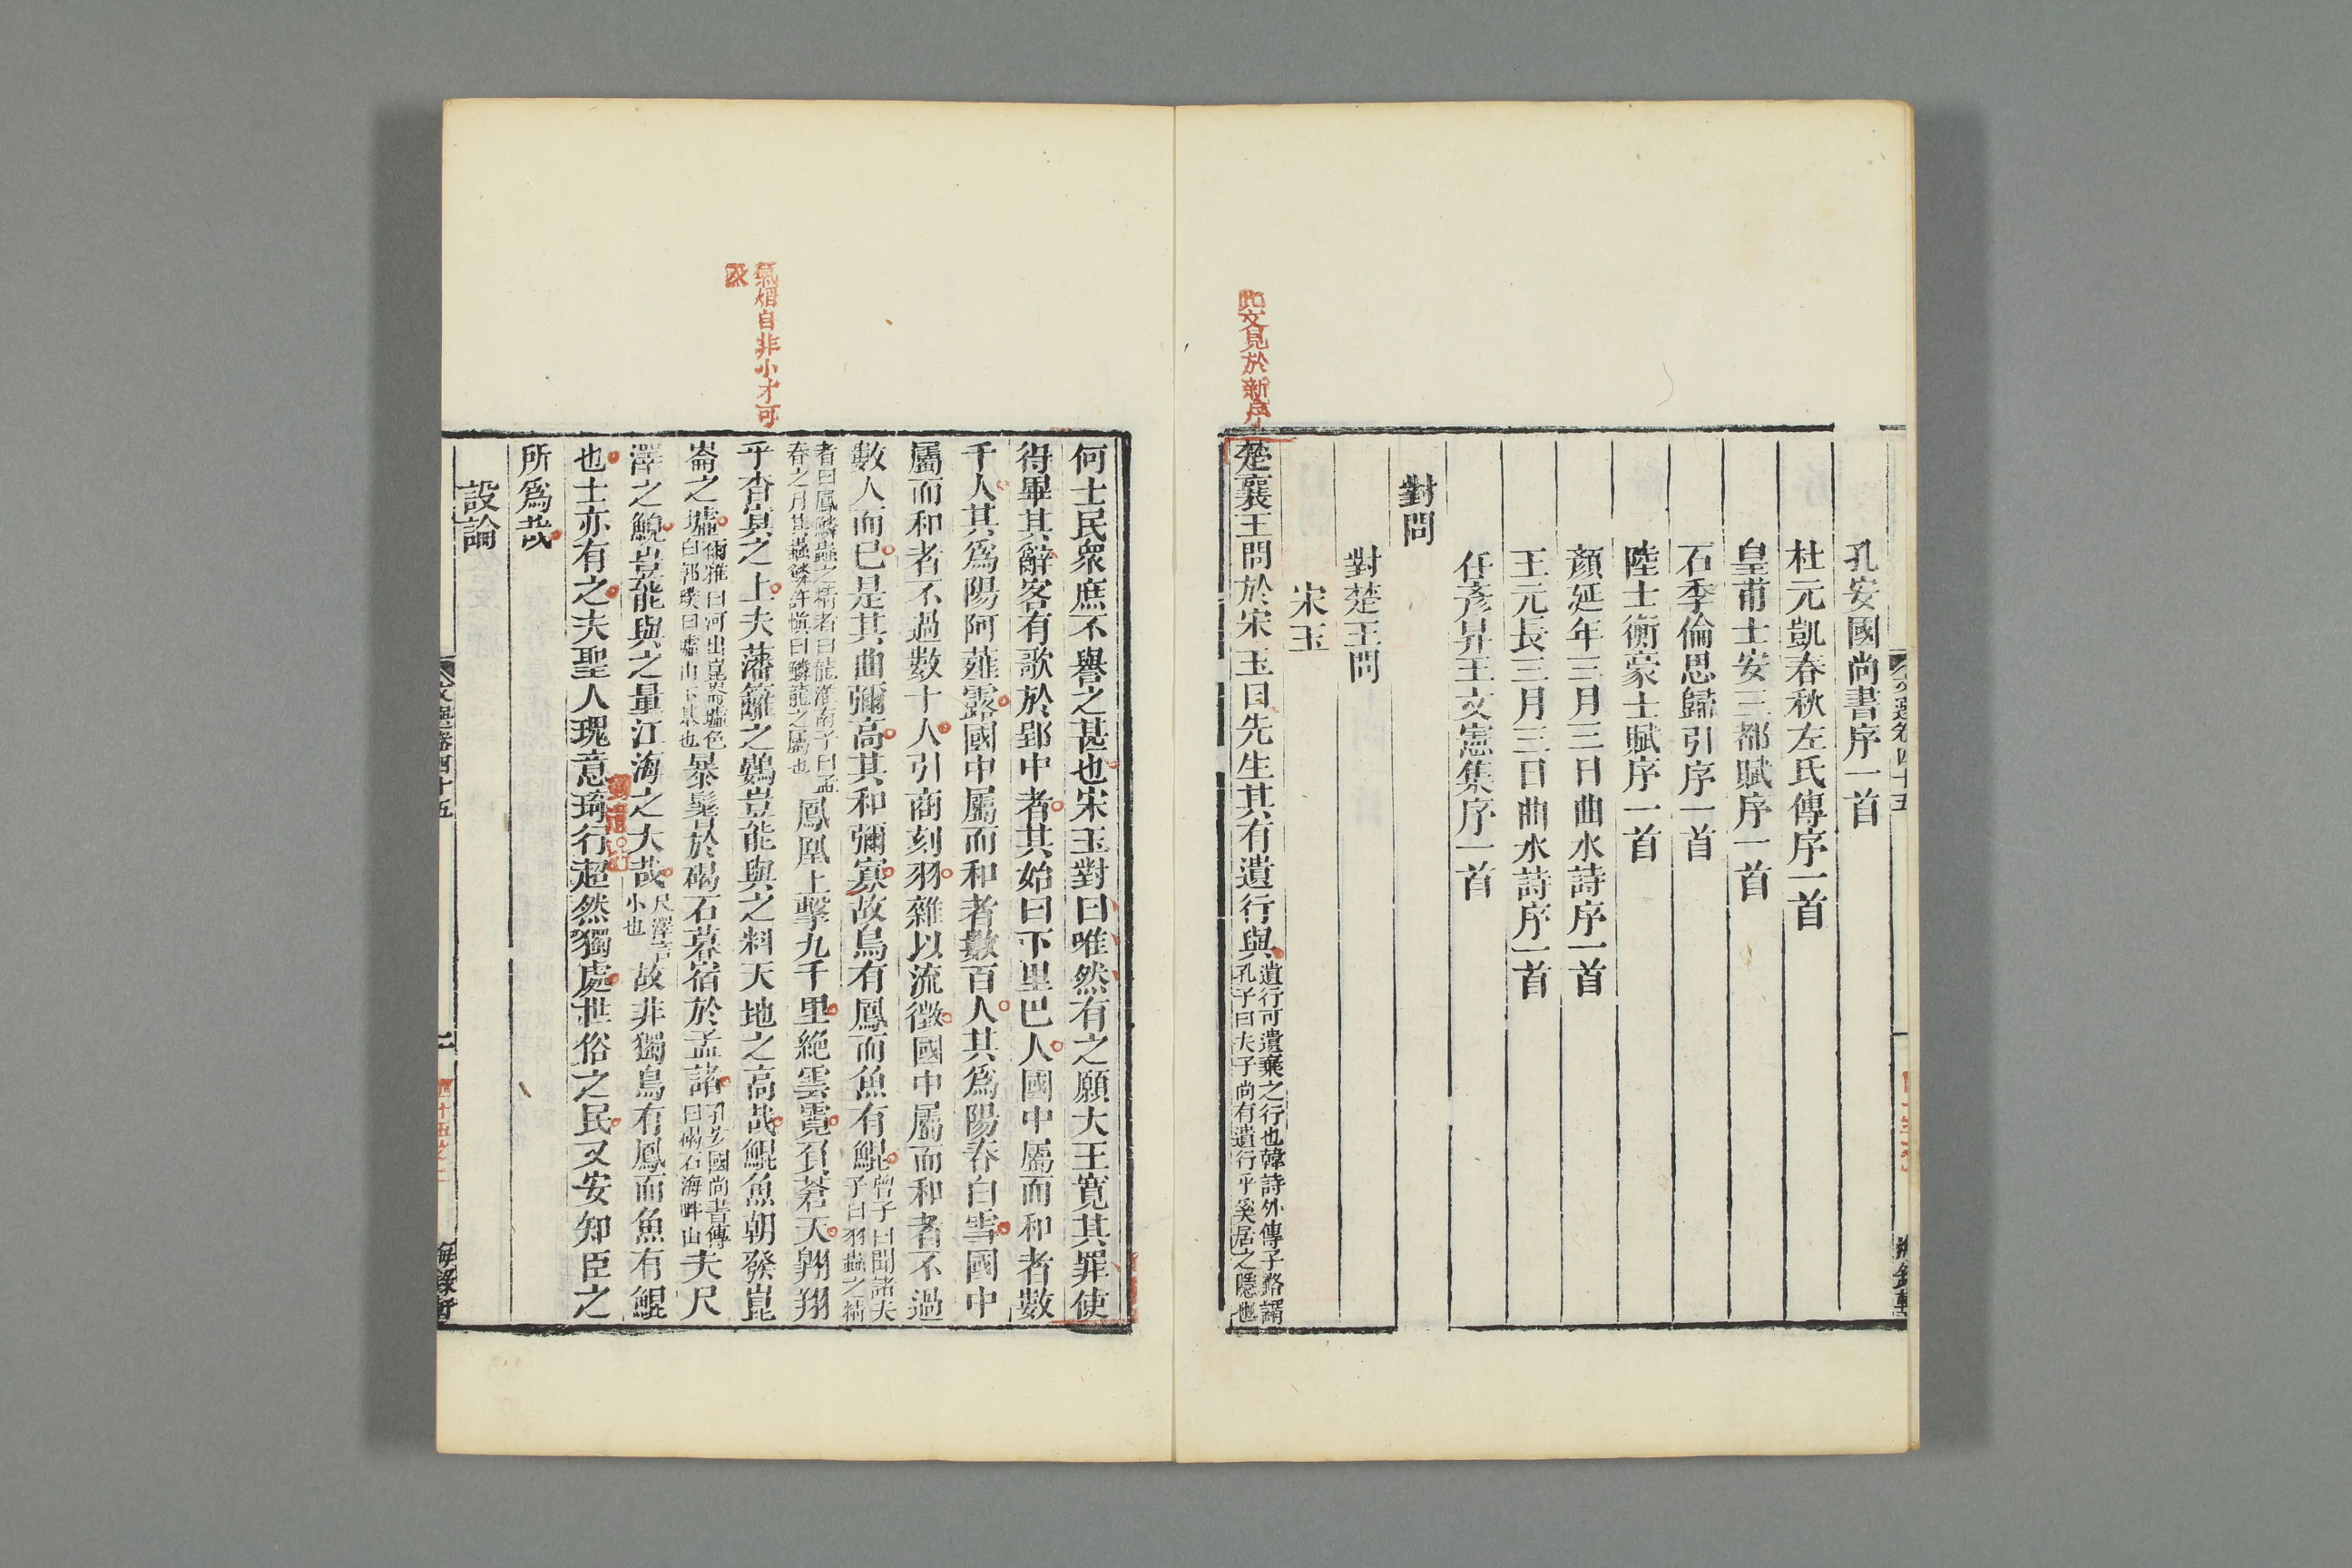 孔安國尚書序一首
杜元凱春秋左氏傳序一首
皇甫士安三都賦序一首
石季倫思歸引序一首
陸士衡豪士賦序一首
顏延年三月三日曲水詩序一首
王元長三月三日曲水詩序一首
任彥昇王文憲集序一首
對問
對楚王問
宋玉
此文見於新序
楚襄王問於宋玉曰先生其有遺行與遺行可遺棄之行也韓詩外傳子路謂孔子曰夫子尚有遺行乎奚居之隱也
何士民眾庶不譽之甚也宋玉對曰唯然有之願大王寬其罪使
得畢其辭客有歌於郢中者其始曰下里巴人國中屬而和者數
千人其爲陽阿薤露國中屬而和者數百人其爲陽春白雪國中
屬而和者不過數十人引商刻羽雜以流徵國中屬而和者不過
數人而已是其曲彌高其和彌寡故鳥有鳳而魚有鯤曾子曰聞諸夫子曰羽蟲之精
者曰鳳鱗蟲之精者曰龍淮南子曰孟春之月其蟲鱗許慎曰鱗龍之屬也鳳凰上擊九千里絶雲霓負蒼天翱翔
氣焰自非小才可及
乎杳冥之上夫藩籬之鷃豈能與之料天地之高哉鯤魚朝發崑
崙之墟爾雅曰河出崑崙墟色白郭璞曰墟山下基也暴鬐於碣石暮宿於孟諸孔安國尚書傳曰碣石海畔山夫尺
澤之鯢豈能與之量江海之大哉尺澤言小也故非獨鳥有鳳而魚有鯤
也士亦有之夫聖人瑰意琦行超然獨處世俗之民又安知臣之
所爲哉
設論
文選卷四十五
二
海錄軒